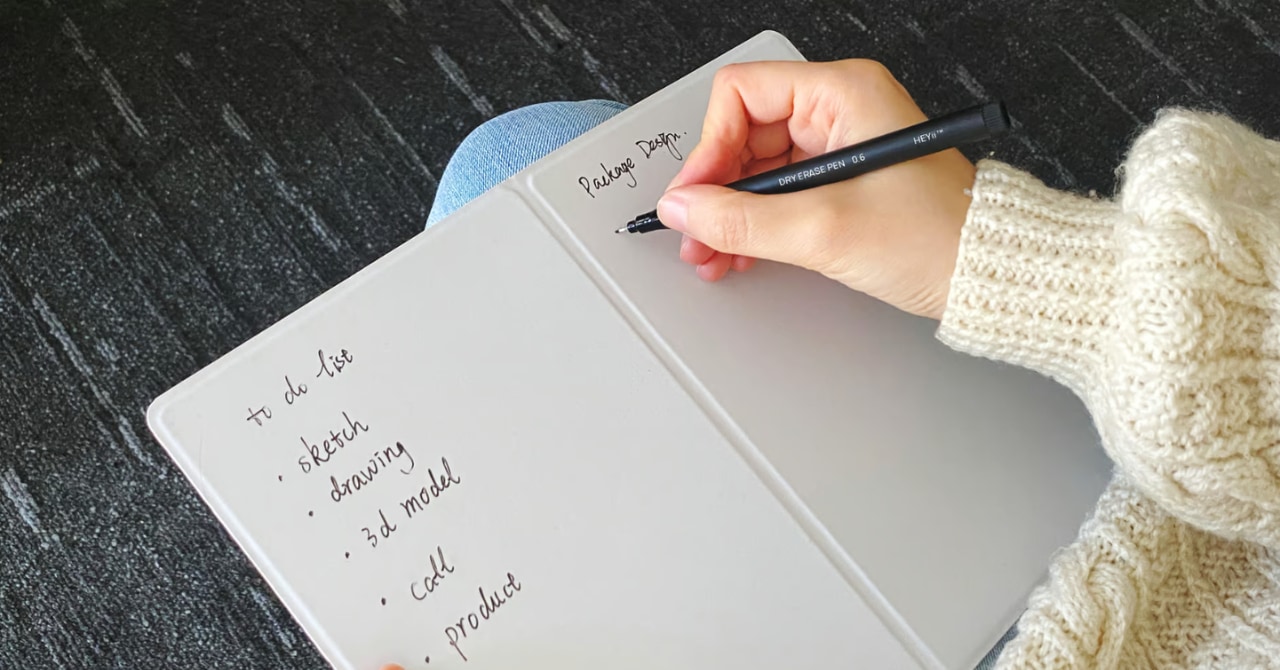 to do list
· sketch
· drawing
· 3d model
· call
· product
Package Design.
DRY ERASE PEN 0.6 HEYii™